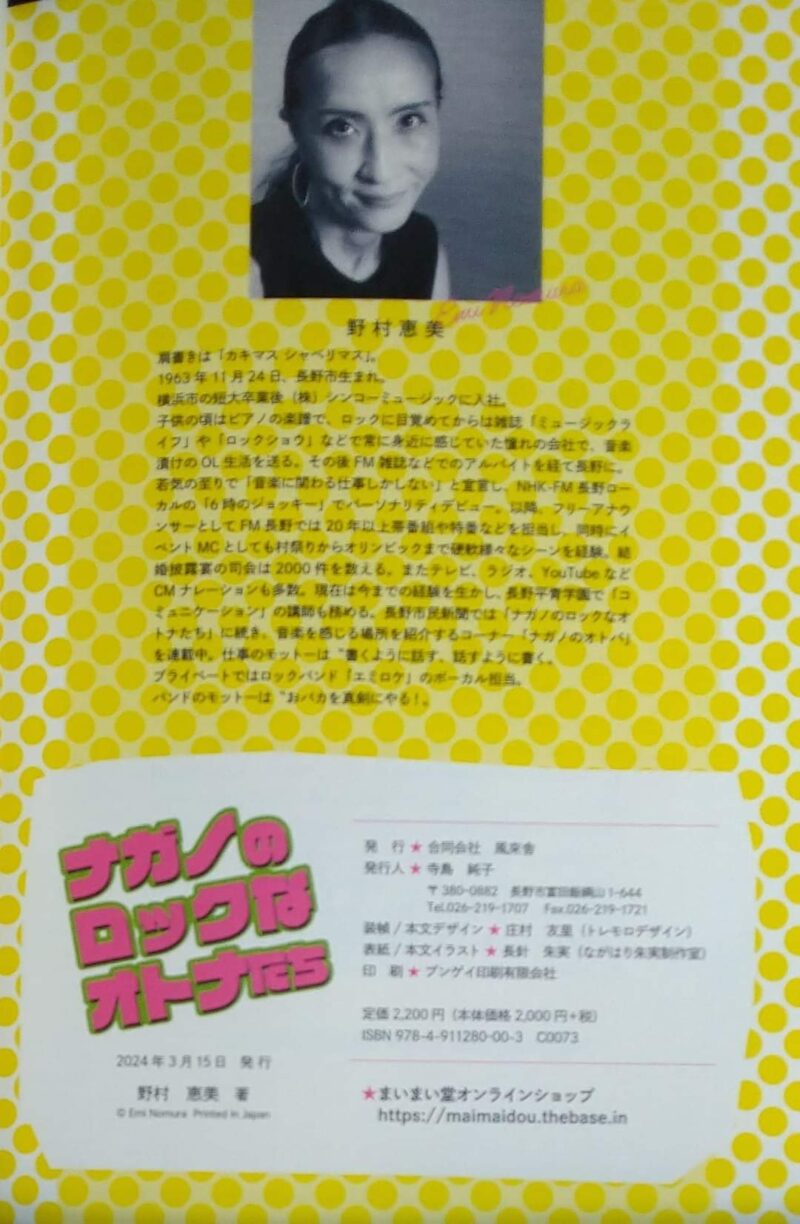 Emi Nomura
野村恵美
肩書きは「カキマス シャベリマス」。
1963年11月24日、長野市生まれ。
横浜市の短大卒業後（株）シンコーミュージックに入社。
子供の頃はピアノの楽譜で、ロックに目覚めてからは雑誌「ミュージックラ
イフ」や「ロックショウ」などで常に身近に感じていた憧れの会社で、音楽
漬けのOL生活を送る。その後FM雑誌などでのアルバイトを経て長野に。
若気の至りで「音楽に関わる仕事しかしない」と宣言し、NHK-FM長野ロー
カルの「6時のジョッキー」でパーソナリティデビュー。以降、フリーアナウ
ンサーとしてFM長野では20年以上帯番組や特番などを担当し、同時にイ
ベントMCとしても村祭りからオリンピックまで硬軟様々なシーンを経験。結
婚披露宴の司会は2000件を数える。またテレビ、ラジオ、YouTubeなど
CMナレーションも多数。現在は今までの経験を生かし、長野平青学園で「コ
ミュニケーション」の講師も務める。長野市民新聞では「ナガノのロックなオ
トナたち」に続き、音楽を感じる場所を紹介するコーナー「ナガノのオトバ」
を連載中。仕事のモットーは〝書くように話す、話すように書く。
プライベートではロックバンド「エミロケ」のボーカル担当。
バンドのモットーは〝おバカを真剣にやる！。
ナガノの
ロックな
オトナたち
2024年3月15日 発行
野村 恵美 著
© Emi Nomura Printed in Japan
発 行★合同会社 風来舎
発行人★寺島 純子
〒380-0882 長野市富田飯綱山1-644
Tel.026-219-1707 Fax.026-219-1721
装幀/本文デザイン★庄村 友里（トレモロデザイン）
表紙/本文イラスト★長針 朱実（ながはり朱実制作室）
印 刷★ブンゲイ印刷有限会社
定価2,200円（本体価格2,000円+税）
ISBN 978-4-911280-00-3 C0073
★まいまい堂オンラインショップ
https://maimaidou.thebase.in